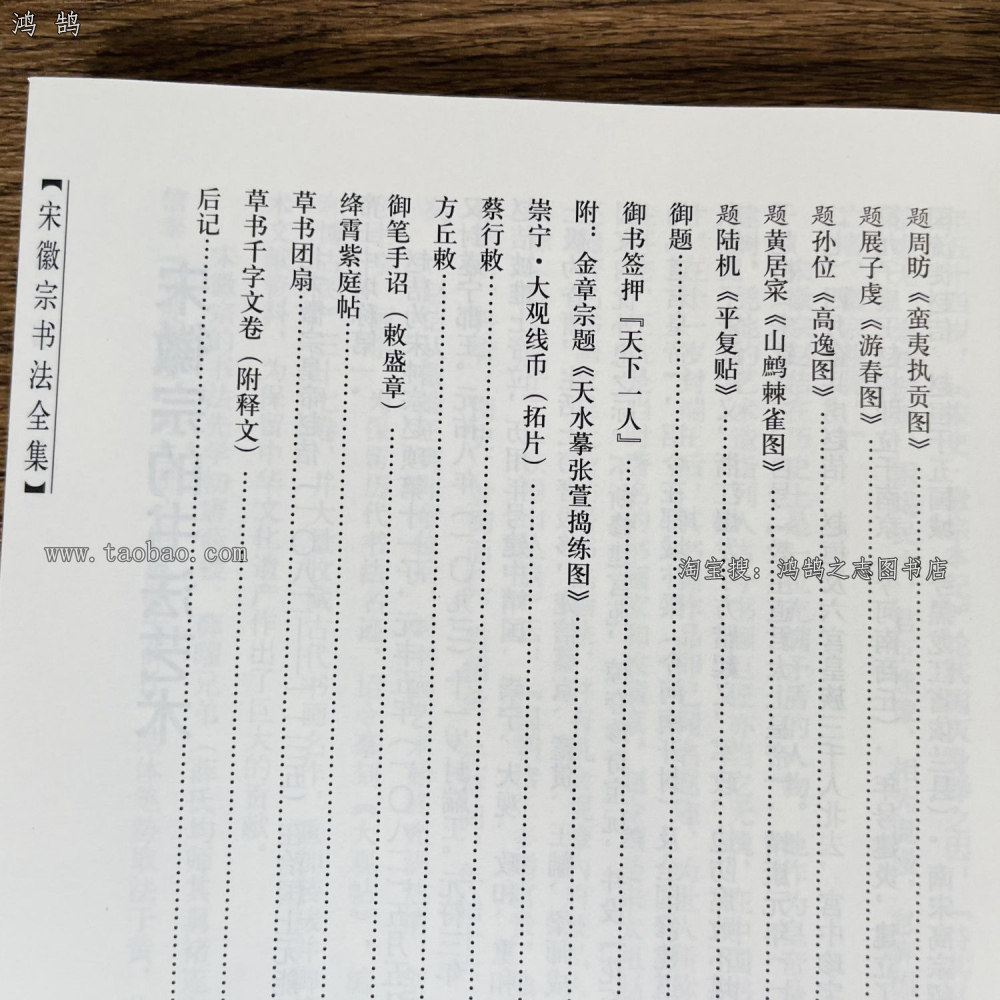 鸿鹄
题周昉《蛮夷执贡图》
题展子虔《游春图》
题孙位《高逸图》
题黄居寀《山鹧棘雀图》
题陆机《平复贴》
御题
御书签押『天下一人』
附：金章宗题《天水摹张萱捣练图》
崇宁·大观线币（拓片）
蔡行敕
方丘敕
御笔手诏（敕盛章）
绛霄紫庭帖
草书团扇
草书千字文卷（附释文）
后记
【宋徽宗书法全集】
www.taobao.com
淘宝搜：鸿鹄之志图书店